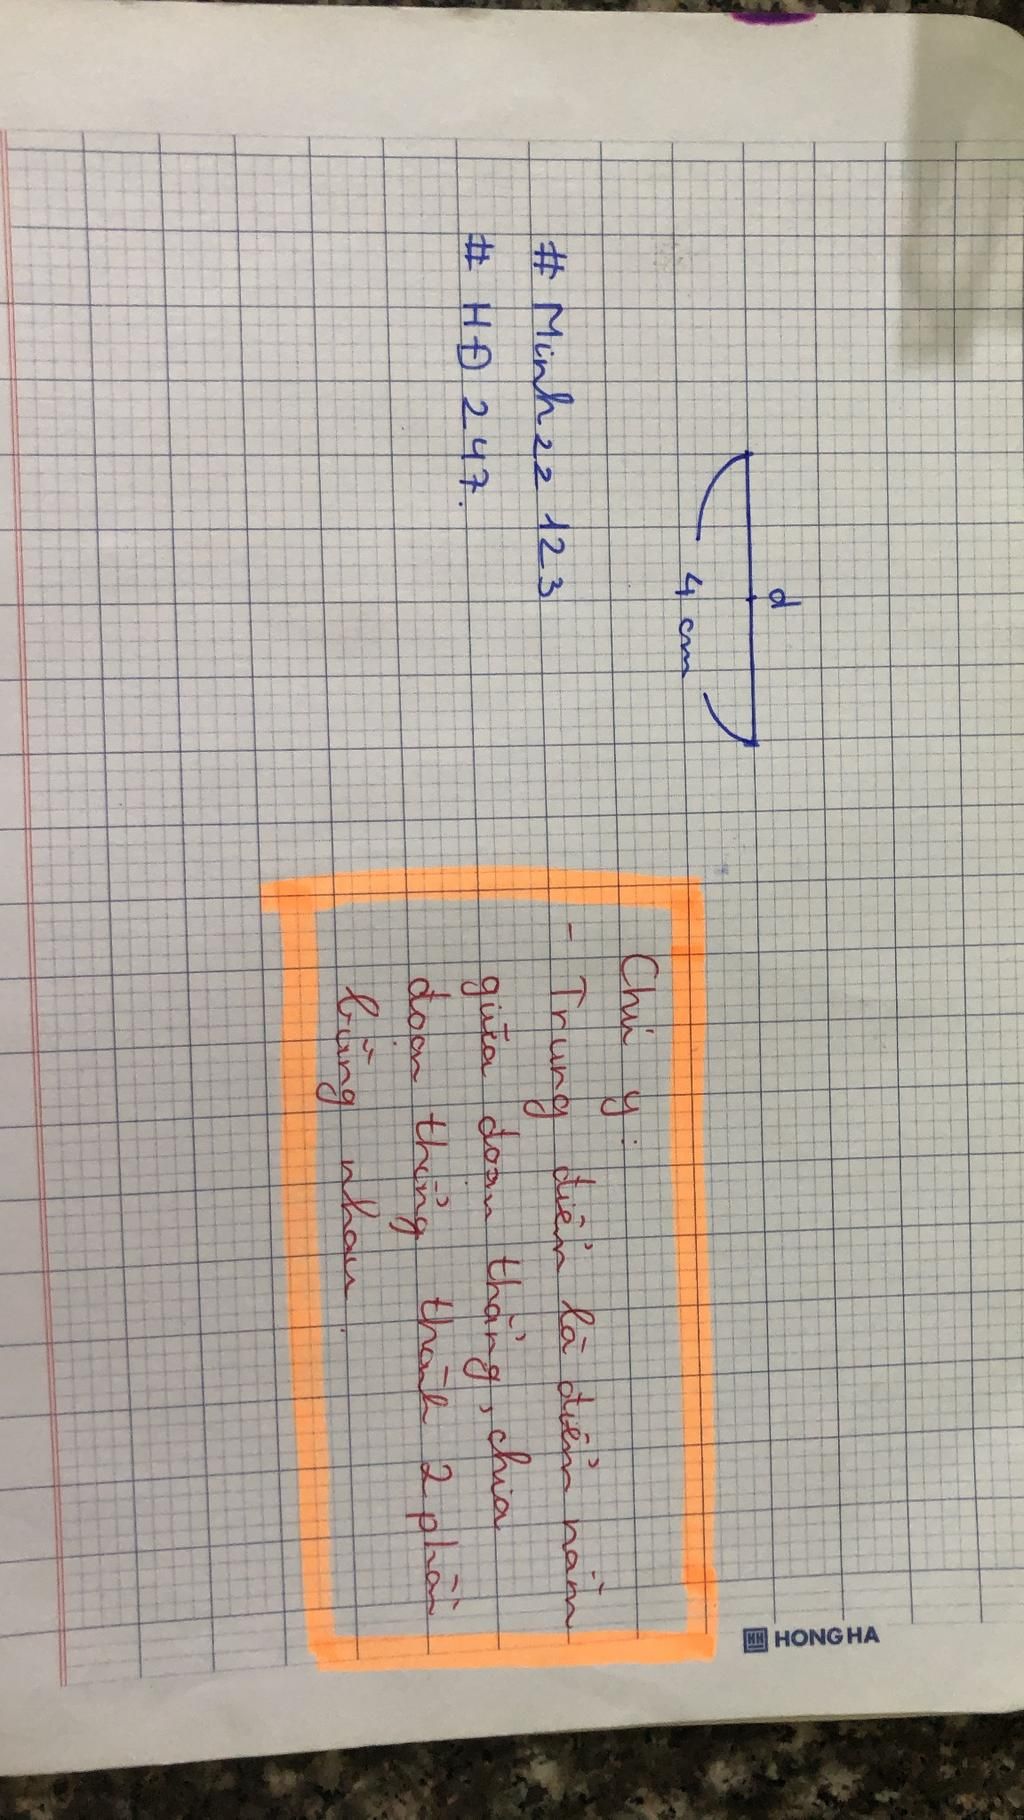 d
4 cm
# Minhzz 123
# HĐ 247.
Chú ý:
- Trung điểm là điểm nằm
giữa đoạn thẳng, chia
đoạn thẳng thành 2 phần
bằng nhau.
HONG HA